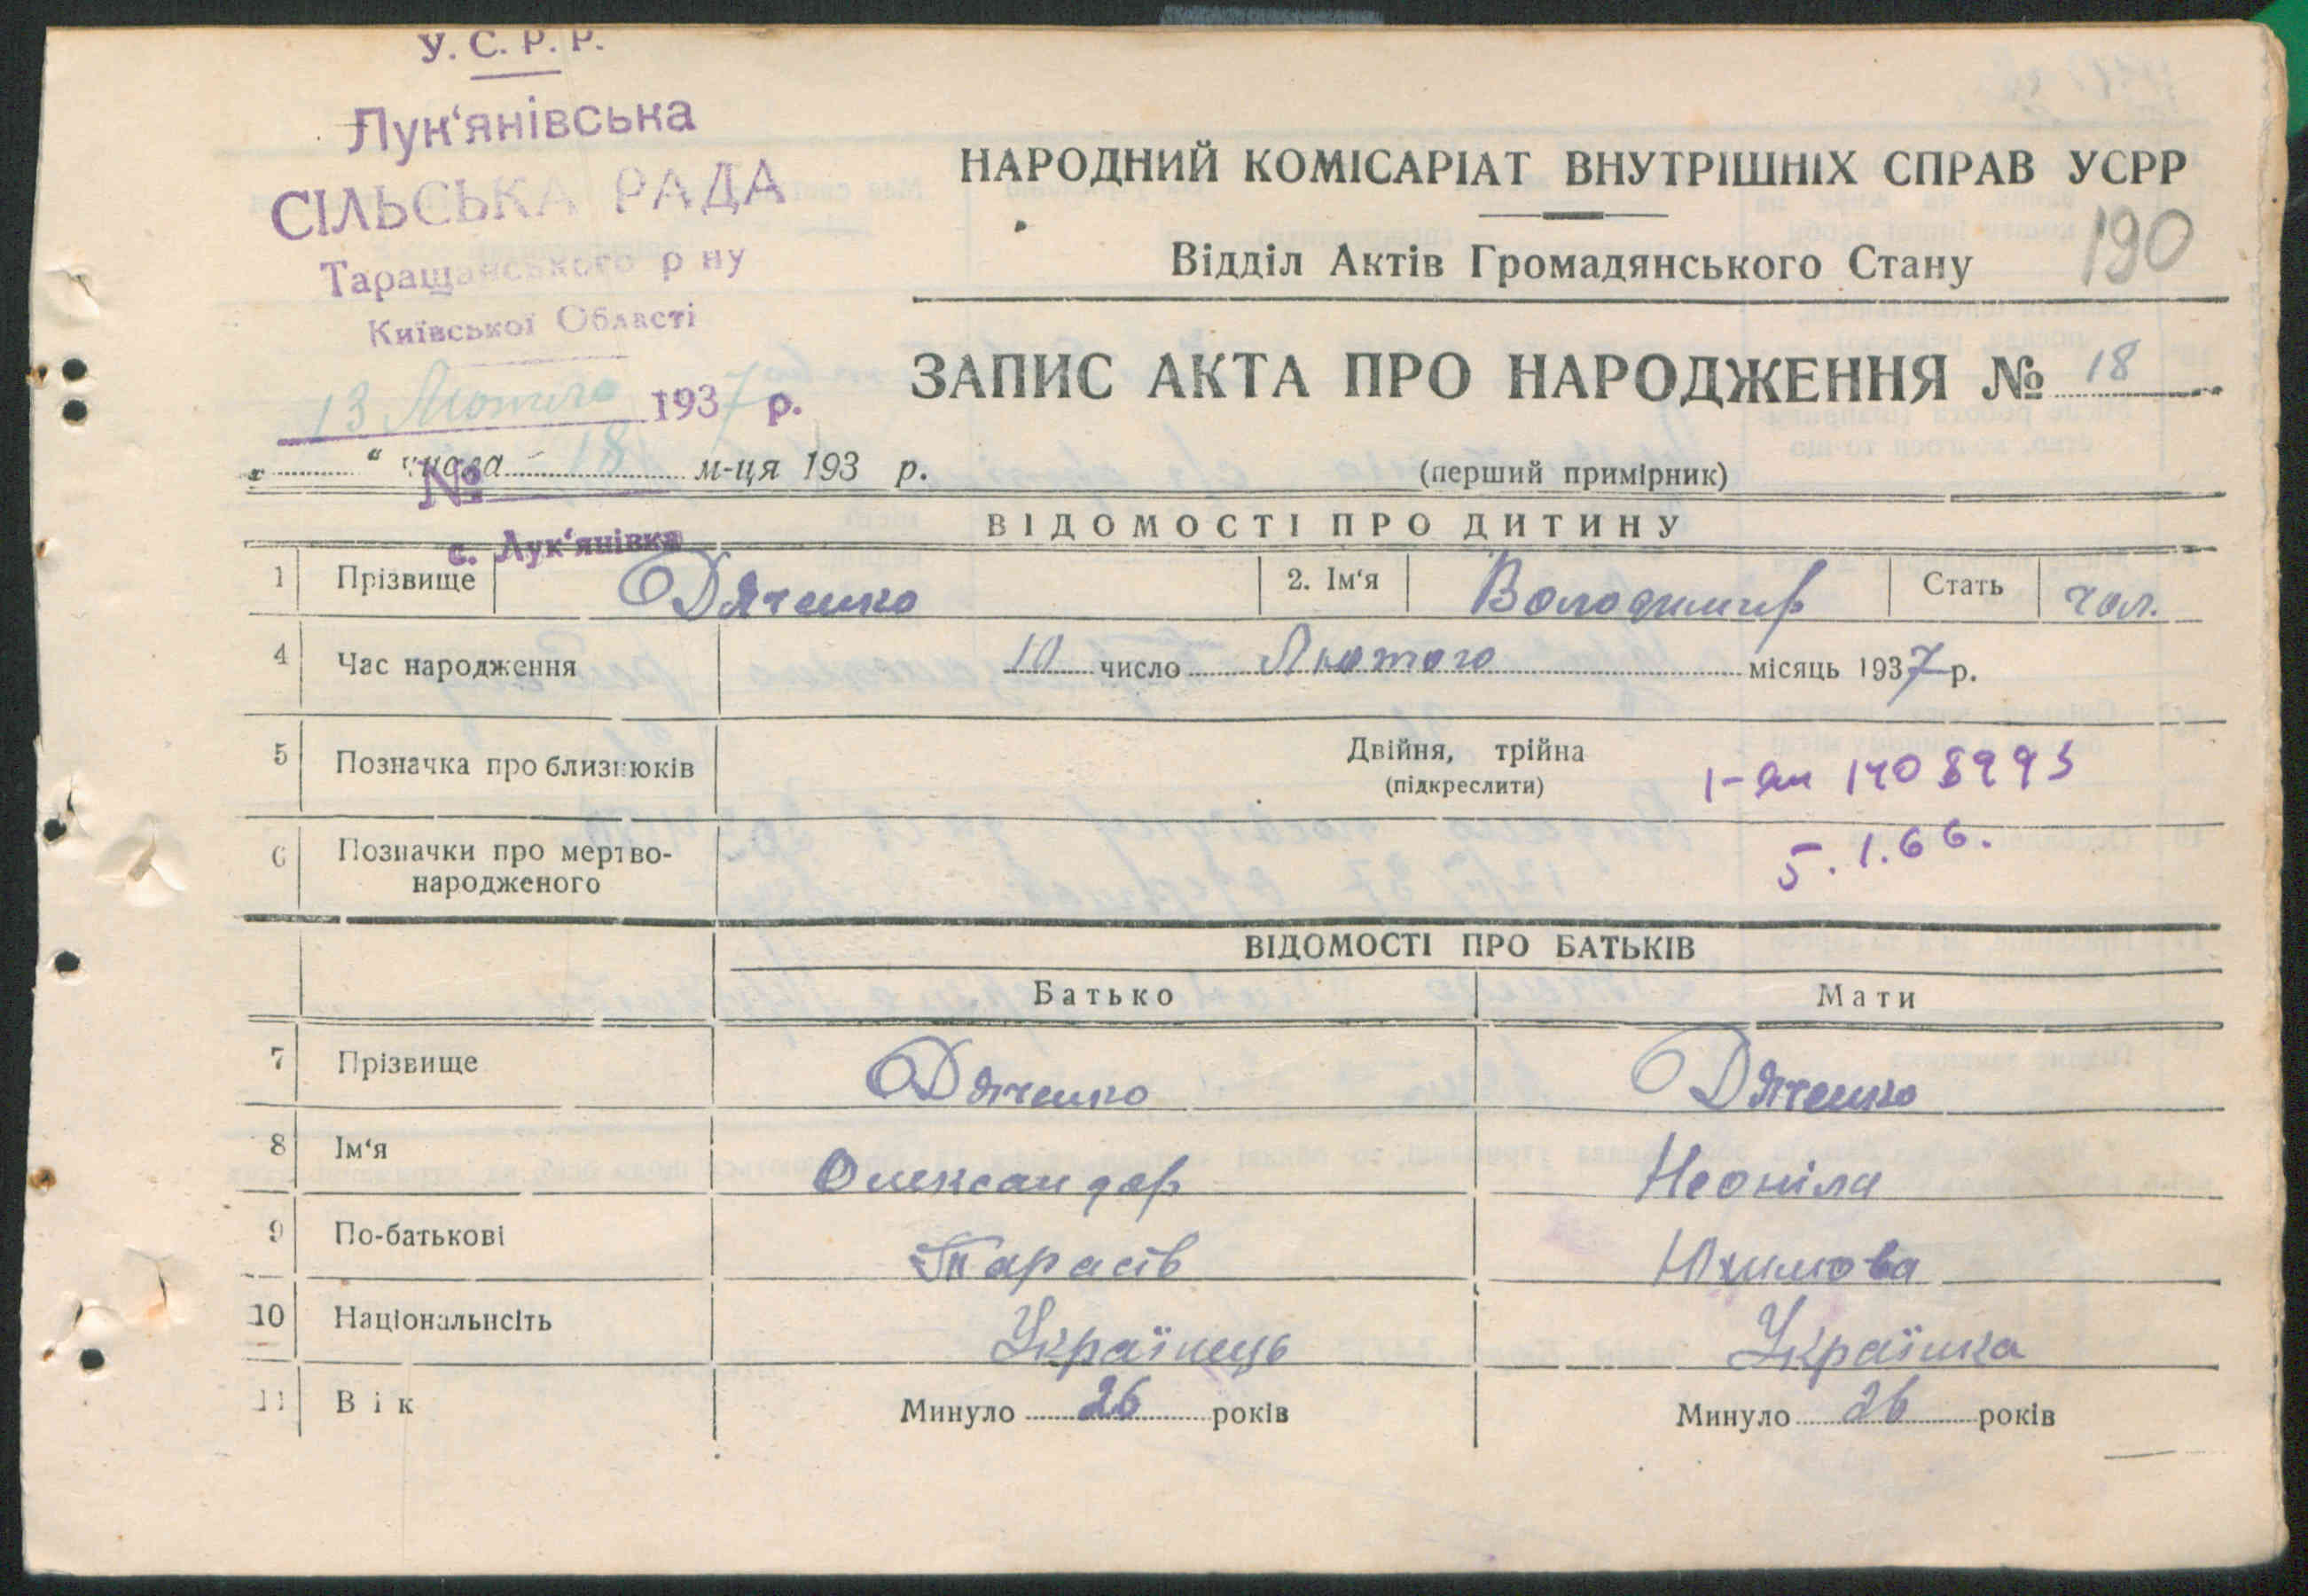 У. С. Р. Р.
Лук'янівська
СІЛЬСЬКА РАДА
Таращанського р ну
Київської Області
13 Лютого 1937 р.
№ 18
" числа м-ця 193 р.
с. Лук'янівка
НАРОДНИЙ КОМІСАРІАТ ВНУТРІШНІХ СПРАВ УСРР
Відділ Актів Громадянського Стану
190
ЗАПИС АКТА ПРО НАРОДЖЕННЯ № 18
(перший примірник)
ВІДОМОСТІ ПРО ДИТИНУ
1 Прізвище Дяченко 2. Ім'я Володимир Стать чол.
4 Час народження 10 число Лютого місяць 1937 р.
5 Позначка про близнюків Двійня, трійна
(підкреслити)
1408993
5.1.66.
6 Позначки про мертво-
народженого
ВІДОМОСТІ ПРО БАТЬКІВ
Батько Мати
7 Прізвище Дяченко Дяченко
8 Ім'я Олександер Неоніла
9 По-батькові Тарасів Юхимова
10 Національнсіть Українець Українка
11 Вік Минуло 26 років Минуло 26 років